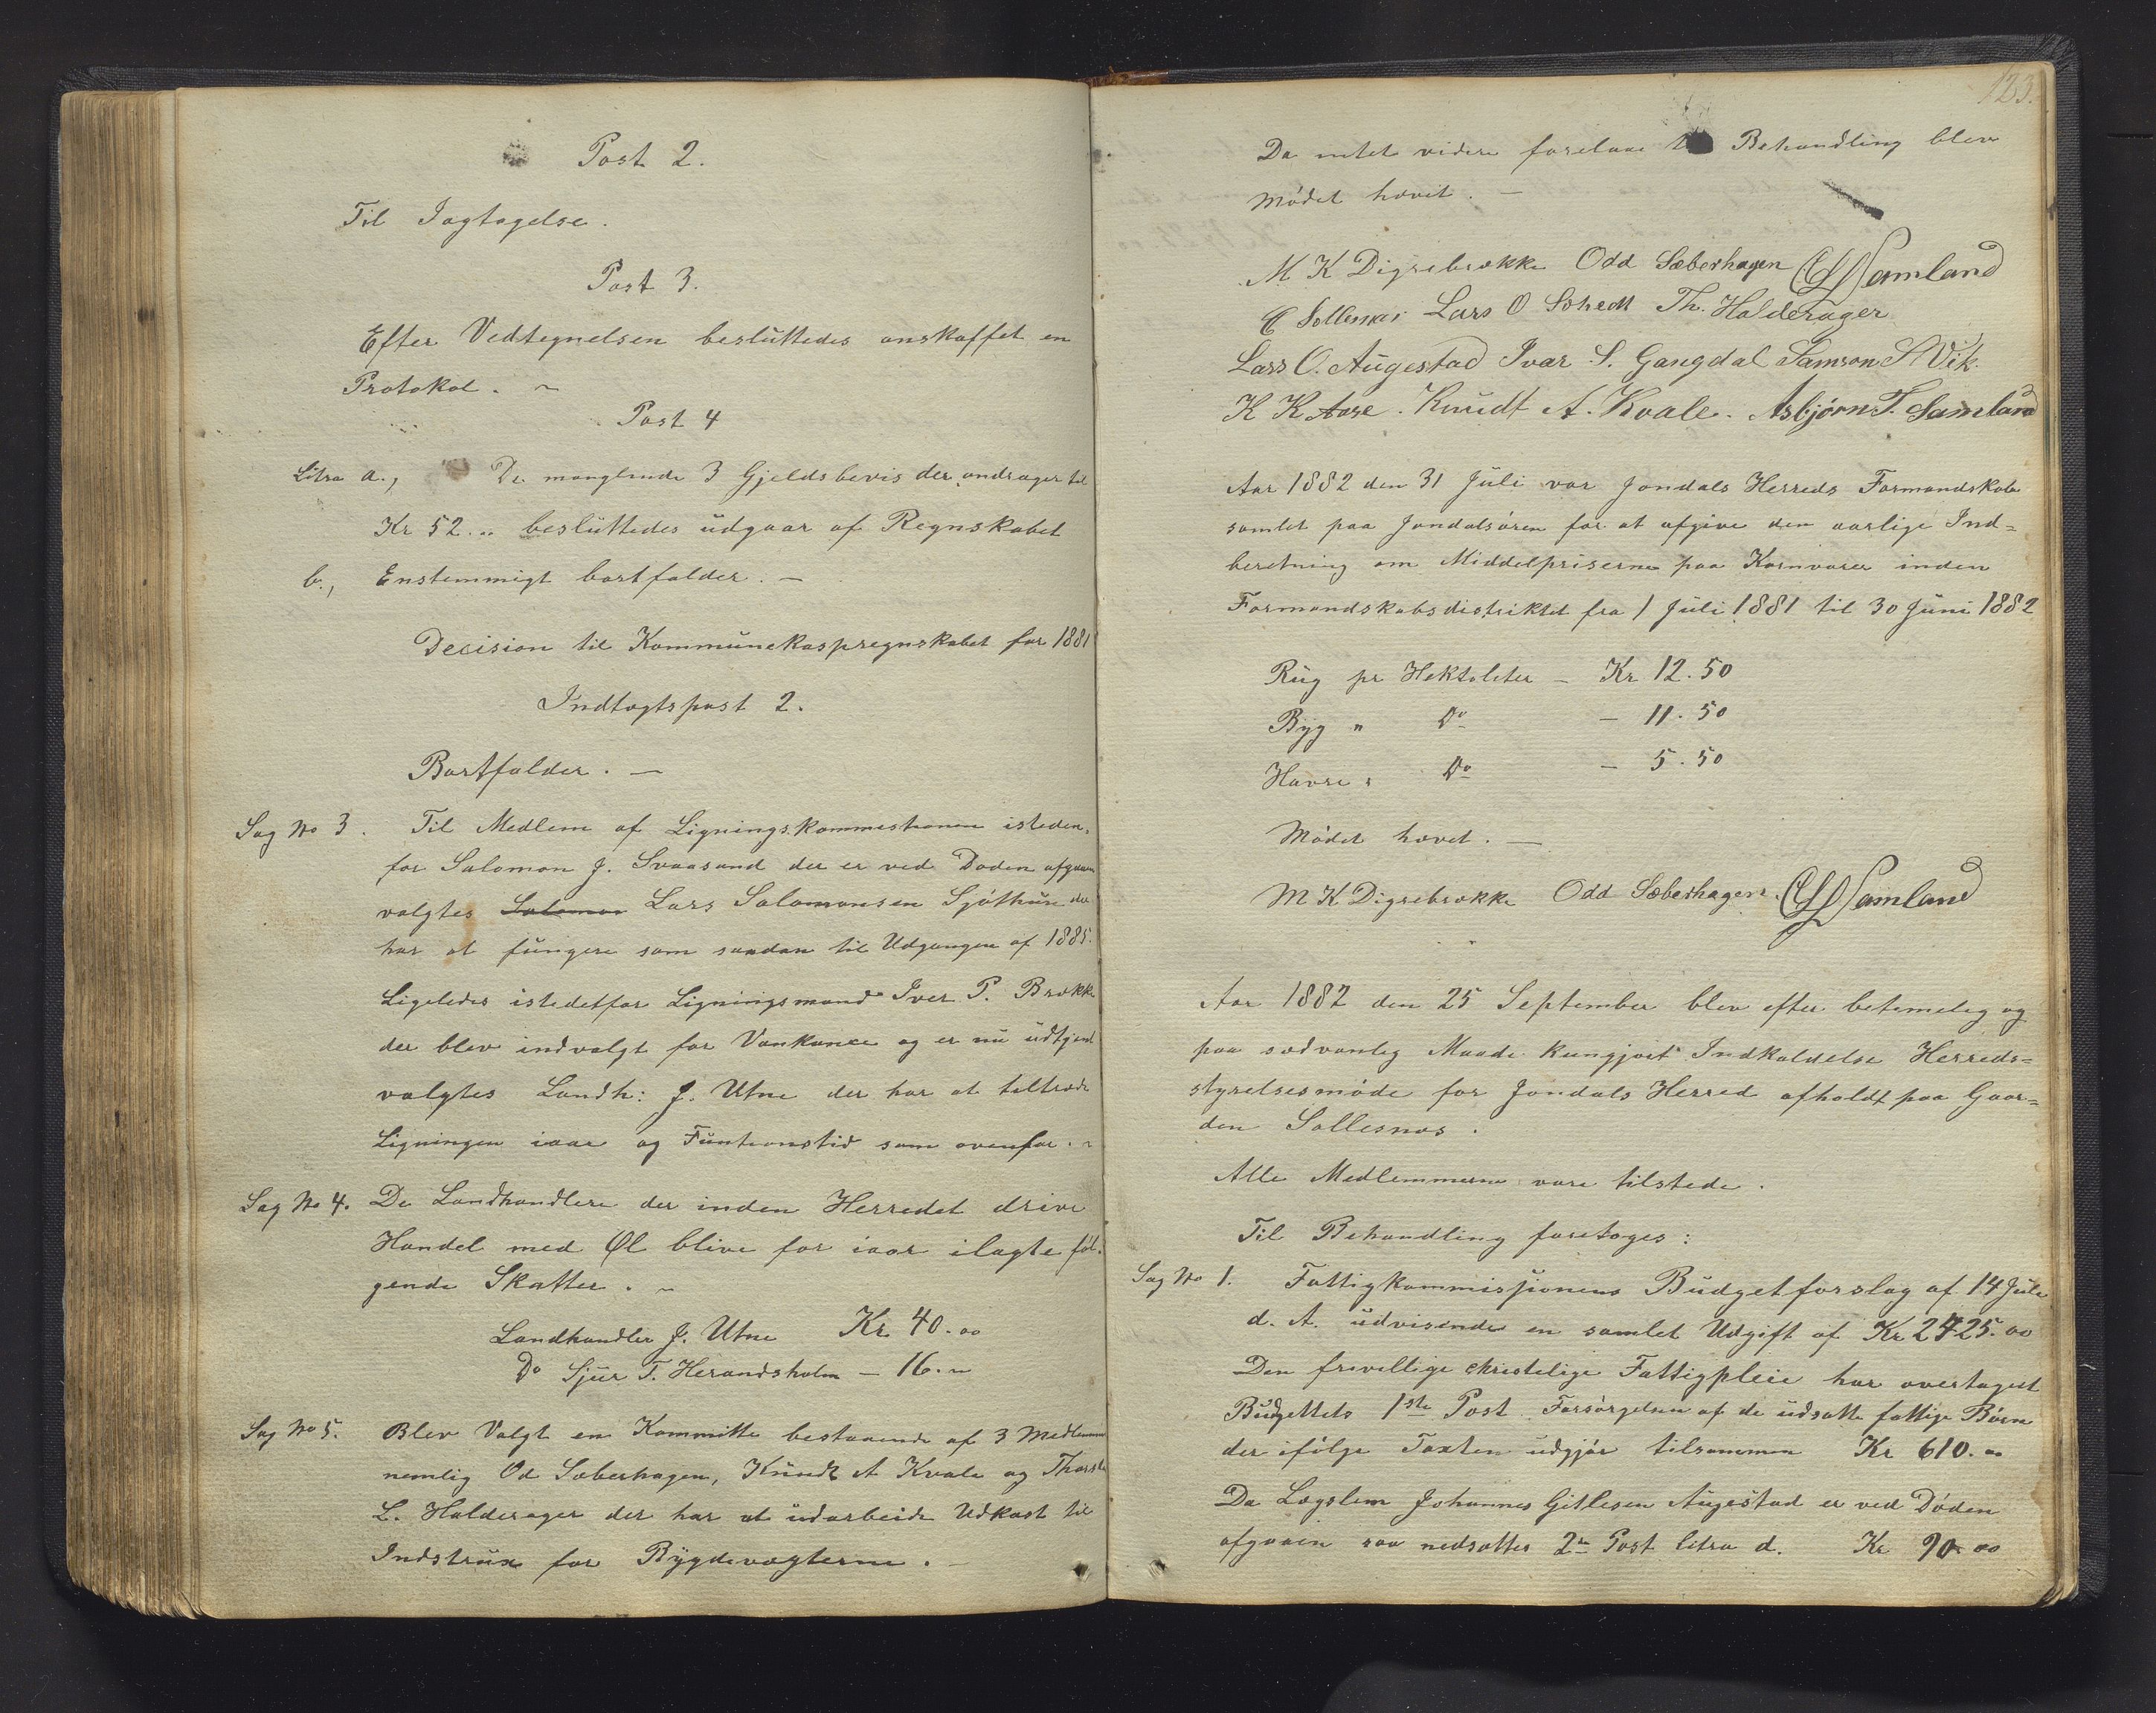 Post 2.
Til Iagtagelse.
Post 3.
Efter Vedtegnelsen besluttedes anskaffet en
Protokol. ~
Post 4
Litra a., De manglende 3 Gjeldsbevis der andrager til
Kr 52.,, besluttedes udgaar af Regnskabet
b., Enstemmigt bortfalder. —
Decision til Kommunekasseregnskabet for 1881
Indtægtspost 2.
Bortfalder. —
Sag No 3. Til Medlem af Ligningskommissionen isteden-
for Salomon J. Svaasand der er ved Døden afgaaen
valgtes Salomon Lars Salomonsen Sjøthun der
har at fungere som saadan til Udgangen af 1885.
Ligeledes istedetfor Ligningsmand Iver P. Brække
der blev indvalgt for Vankance og er nu udtjent
valgtes Landh: J. Utne der har at tiltræde
Ligningen iaar og Funtionstid som ovenfor. ~
Sag No 4. De Landhandlere der inden Herredet drive
Handel med Øl blive for iaar ilagte føl-
gende Skatter. ~
Landhandler J. Utne Kr 40.00
Do Sjur T. Herandsholm — 16.,,
Sag No 5. Blev Valgt en Kommitte bestaaende af 3 Medlemmer
nemlig Od Sæberhagen, Knudt A Kvale og Thorste
L. Halderager der har at udarbeide Udkast til
Indstrux for Bygdevægterne. —
123.
Da intet videre forelaae til Behandling blev
Mødet hævet. —
M K Digrebrække Odd Sæberhagen Samland
Lars O Th. Halderager
Lars O. Augestad Ivar S. Gangdal Samson S Vik.
K K Aase. Knudt A. Kvale. Asbjørn T. Samland
Aar 1882 den 31 Juli var Jondals Herreds Formandskab
samlet paa Jondalsøren for at afgive den aarlige Ind=
beretning om Middelpriserne paa Kornvarer inden
Formandskabsdistriktet fra 1 Juli 1881 til 30 Juni 1882
Rug pr Hektoliter — Kr 12.50
Byg " Do — 11.50
Havre " Do — 5.50
Mødet hævet. —
M K Digrebrække Odd Sæberhagen. Samland
Aar 1882 den 25 September blev efter betimelig og
paa sædvanlig Maade kungjort Indkaldelse Herreds=
styrelsesmøde for Jondals Herred afholdt paa Gaar=
den Sollesnæs.
Alle Medlemmerne vare tilstede.
Til Behandling foretoges:
Sag No 1. Fattigkommissionens Budgetforslag af 14 Juli
d. A. udvisende en samlet Udgift af Kr 2425.00
Den frivillige christelige Fattigpleie har overtaget
Budgettets 1ste Post Forsørgelsen af de udsatte fattige Børn
der ifølge Taxten udgjør tilsammen Kr 610.00
Da Lægslem Johannes Gitlesen Augestad er ved Døden
afgaaen saa nedsættes 2n Post litra d. Kr 90.00